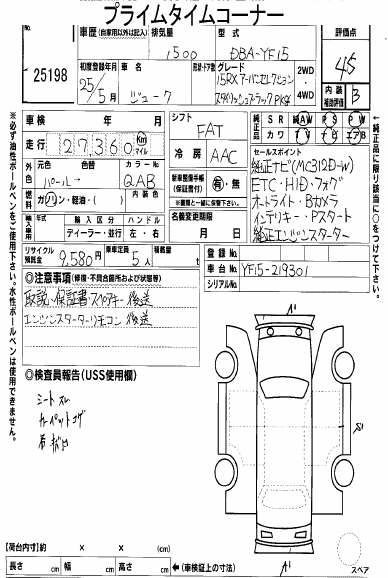 プライムタイムコーナー
25198
車歴 (自家用以外は記入) 排気量 型式 評価点
1500 DBA-YF15 4.5
初度登録年月 車名 形状・ドア数 グレード
25/5月 ジューク 15RXアーバンセレクション
スタイリッシュブラックPKG
2WD・4WD
内装補助評価 B
車検 年 月
走行 27360 Km マイル
シフト FAT
冷房 AAC
純正品 SR AW PS PW
カワ TV ナビ エアB
外色 元色 色替 カラーNo
パール→ QAB
燃料 ガソリン・軽油・( ) 内装色
輸入車用 年式 輸入区分 ハンドル
ディーラー・並行 左・右
新車整備手帳(保証書付) 有・無
名義変更期限 月 日
セールスポイント
純正ナビ(MC312D-W)
ETC・HID・フォグ
オートライト・Bカメラ
インテリキー・Pスタート
純正エンジンスターター
リサイクル預託金 9,580円 乗車定員 5人
登録No.
車台No. YF15-219301
シリアルNo.
◎注意事項 (修復・不具合箇所および状態等)
取説・保証書・スペアキー後送
エンジンスターターリモコン後送
◎検査員報告(USS使用欄)
シートスレ
カーペットコゲ
※必ず油性ボールペンをご使用下さい。水性ボールペンは使用できません。
※純正品に限り該当に○をつけて下さい
【荷台内寸】約 × × (cm)
長さ cm 幅 cm 高さ cm ←(車検証上の寸法)
スペア